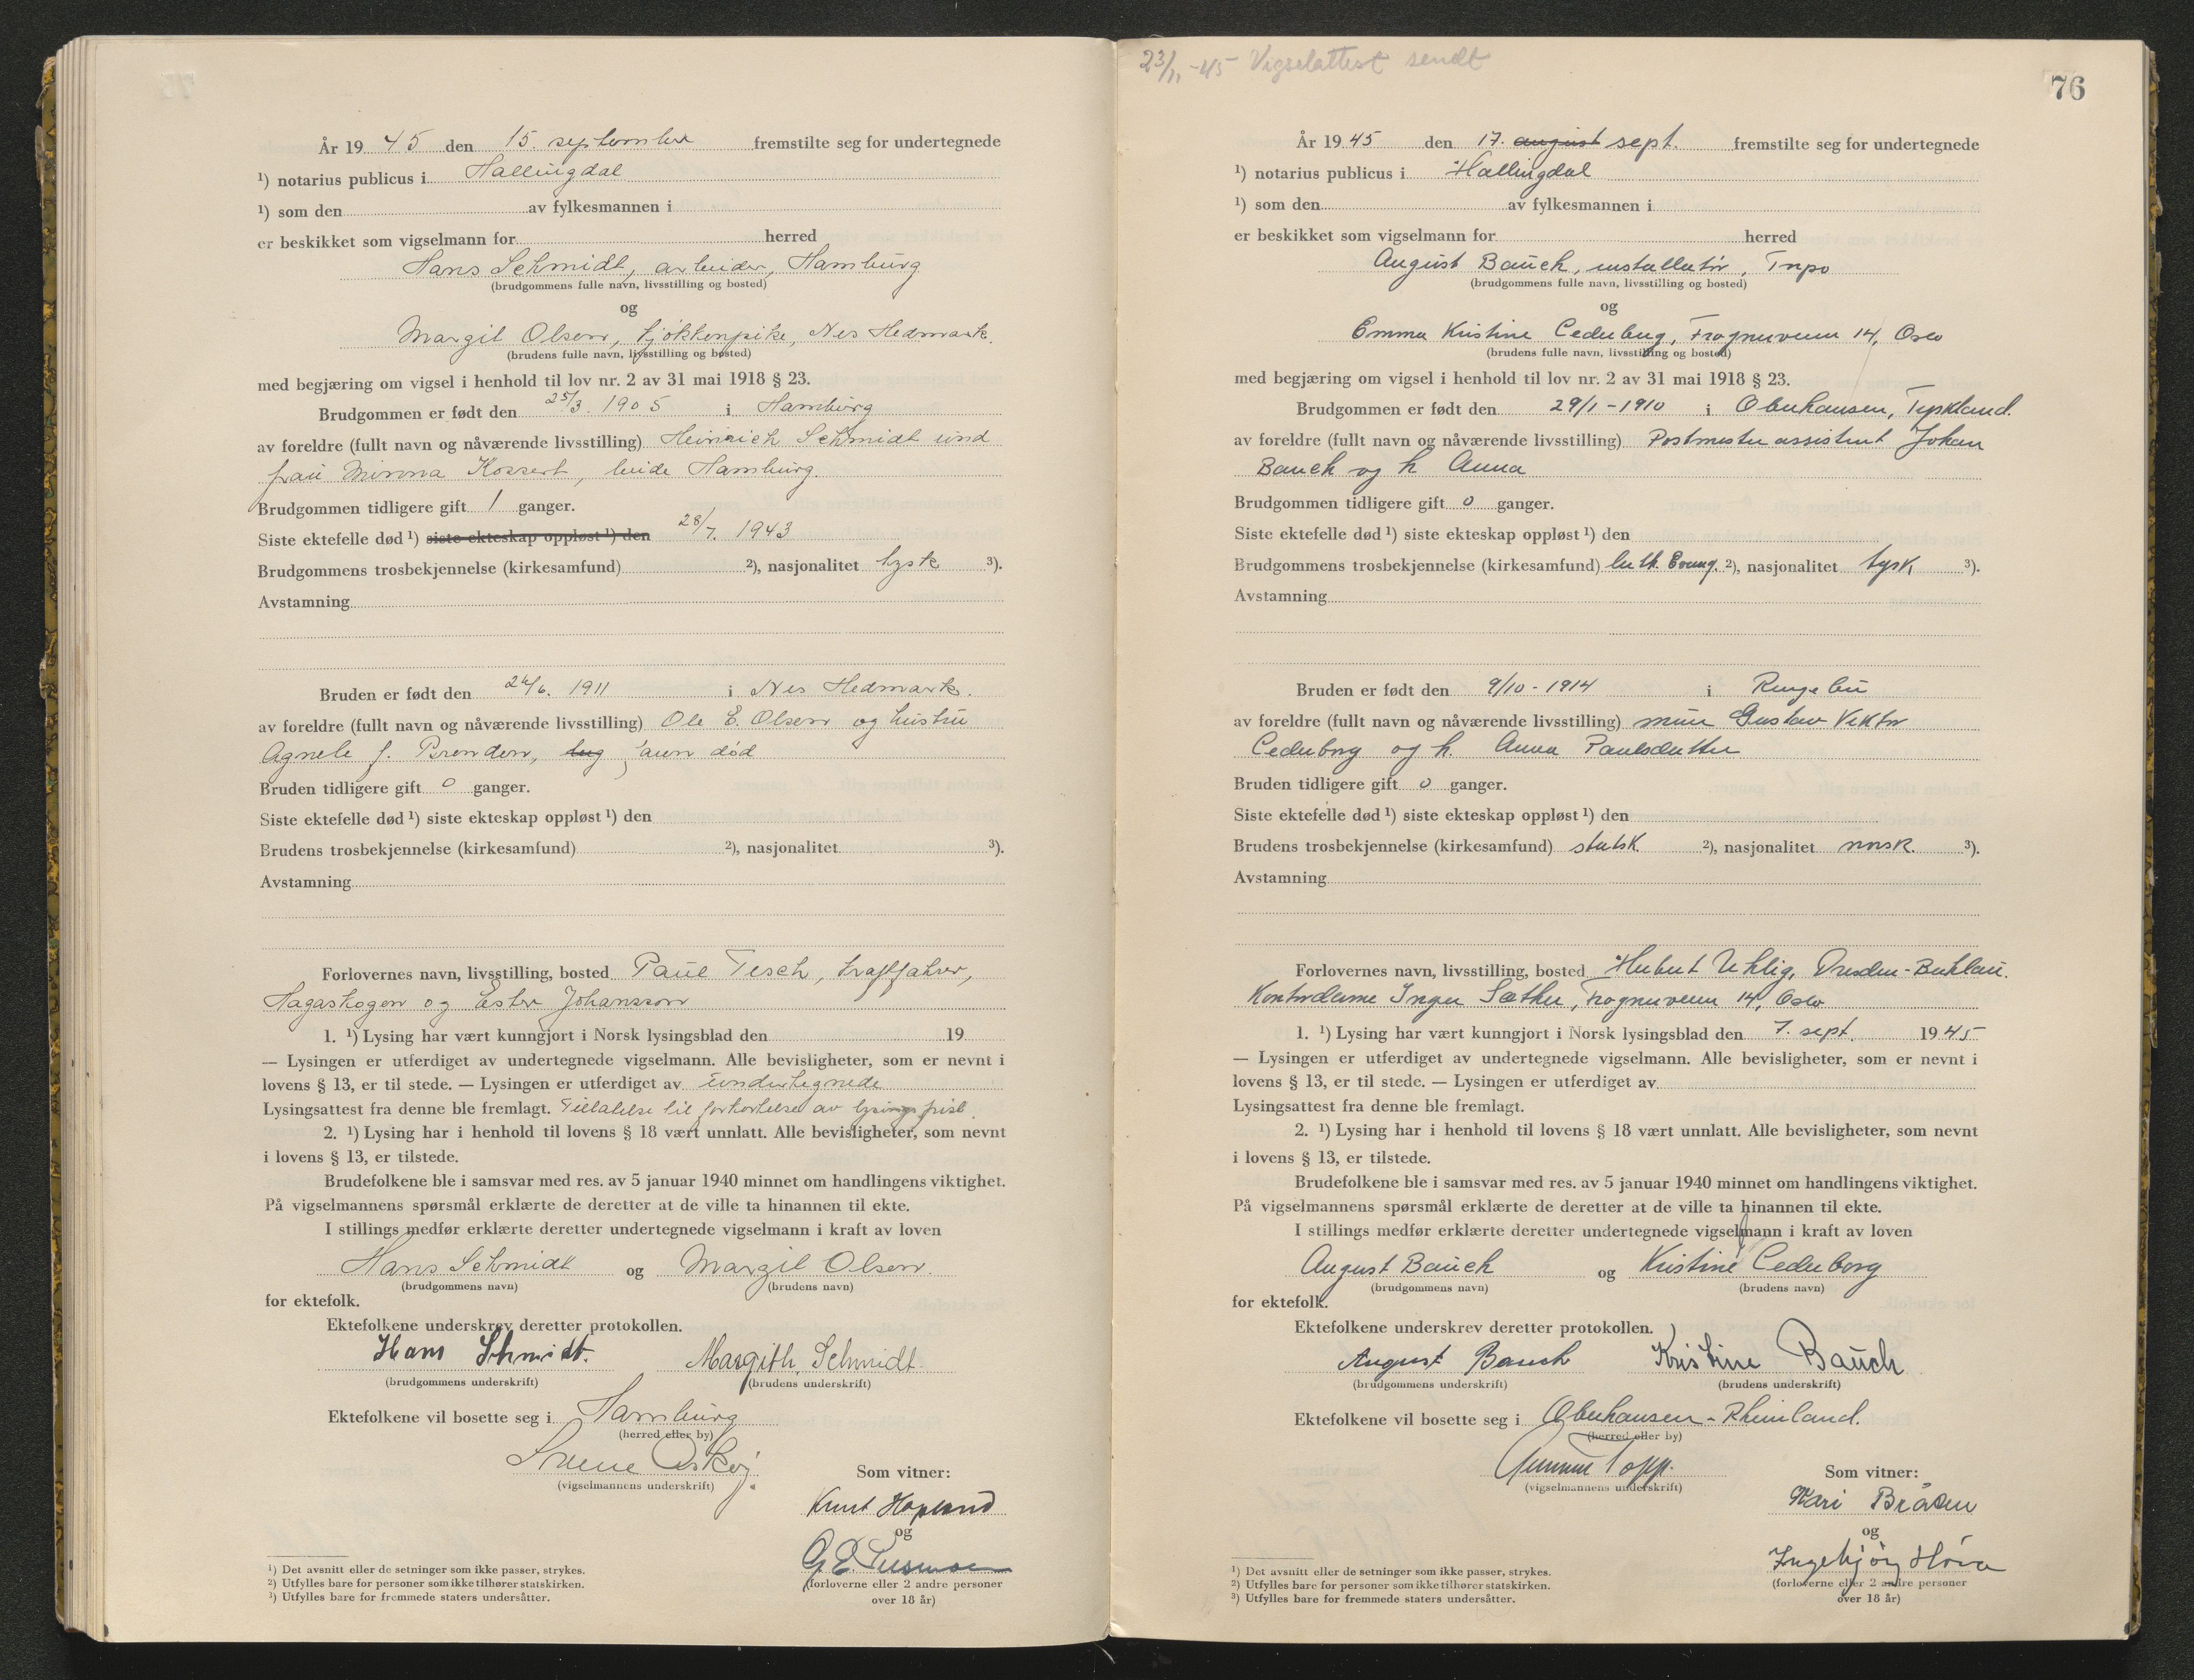 År 19 45 den 15. september fremstilte seg for undertegnede
¹) notarius publicus i Hallingdal
¹) som den av fylkesmannen i
er beskikket som vigselmann for herred
Hans Schmidt, arbeider, Hamburg
(brudgommens fulle navn, livsstilling og bosted)
og
Margit Olsen, kjøkkenpike, Nes Hedmark.
(brudens fulle navn, livsstilling og bosted)
med begjæring om vigsel i henhold til lov nr. 2 av 31 mai 1918 § 23.
Brudgommen er født den 25/3. 1905 i Hamburg
av foreldre (fullt navn og nåværende livsstilling) Heinrich Schmidt und
frau Minna Kossert, beide Hamburg.
Brudgommen tidligere gift 1 ganger.
Siste ektefelle død ¹) siste ekteskap oppløst ¹) den 28/7. 1943
Brudgommens trosbekjennelse (kirkesamfund) ²), nasjonalitet tysk ³).
Avstamning
Bruden er født den 24/6. 1911 i Nes Hedmark.
av foreldre (fullt navn og nåværende livsstilling) Ole E. Olsen og hustru
Agnete f. Brenden, død
Bruden tidligere gift 0 ganger.
Siste ektefelle død ¹) siste ekteskap oppløst ¹) den
Brudens trosbekjennelse (kirkesamfund) ²), nasjonalitet ³).
Avstamning
Forlovernes navn, livsstilling, bosted Paul Tesch, kraftfahrer,
Hagaskogen og Ester Johansson
1. ¹) Lysing har vært kunngjort i Norsk lysingsblad den 19
— Lysingen er utferdiget av undertegnede vigselmann. Alle bevisligheter, som er nevnt i
lovens § 13, er til stede. — Lysingen er utferdiget av undertegnede
Lysingsattest fra denne ble fremlagt. Tillatelse til forkortelse av lysingsfrist.
2. ¹) Lysing har i henhold til lovens § 18 vært unnlatt. Alle bevisligheter, som nevnt
i lovens § 13, er tilstede.
Brudefolkene ble i samsvar med res. av 5 januar 1940 minnet om handlingens viktighet.
På vigselmannens spørsmål erklærte de deretter at de ville ta hinannen til ekte.
I stillings medfør erklærte deretter undertegnede vigselmann i kraft av loven
Hans Schmidt og Margit Olsen.
(brudgommens navn) (brudens navn)
for ektefolk.
Ektefolkene underskrev deretter protokollen.
Hans Schmidt. Margith Schmidt
(brudgommens underskrift) (brudens underskrift)
Ektefolkene vil bosette seg i Hamburg
(herred eller by)
(vigselmannens underskrift)
Som vitner:
Knut Hopland
og
(forloverne eller 2 andre personer
over 18 år)
¹) Det avsnitt eller de setninger som ikke passer, strykes.
²) Utfylles bare for personer som ikke tilhører statskirken.
³) Utfylles bare for fremmede staters undersåtter.
23/11 -45 Vigselattest sendt
76
År 19 45 den 17. august sept. fremstilte seg for undertegnede
¹) notarius publicus i Hallingdal
¹) som den av fylkesmannen i
er beskikket som vigselmann for herred
August Bauch, installatør, Torpo
(brudgommens fulle navn, livsstilling og bosted)
og
Emma Kristine Cederborg, Frognerveien 14, Oslo
(brudens fulle navn, livsstilling og bosted)
med begjæring om vigsel i henhold til lov nr. 2 av 31 mai 1918 § 23.
Brudgommen er født den 29/1 - 1910 i Oberhausen, Tyskland.
av foreldre (fullt navn og nåværende livsstilling) Postmesterassistent Johan
Bauch og h. Anna
Brudgommen tidligere gift 0 ganger.
Siste ektefelle død ¹) siste ekteskap oppløst ¹) den
Brudgommens trosbekjennelse (kirkesamfund) luth. Evang. ²), nasjonalitet tysk ³).
Avstamning
Bruden er født den 9/10 - 1914 i Ringebu
av foreldre (fullt navn og nåværende livsstilling) murer Gustav Viktor
Cederborg og h. Anna Paulsdatter
Bruden tidligere gift 0 ganger.
Siste ektefelle død ¹) siste ekteskap oppløst ¹) den
Brudens trosbekjennelse (kirkesamfund) statsk. ²), nasjonalitet norsk ³).
Avstamning
Forlovernes navn, livsstilling, bosted Herbert Uhlig, Dresden-Bühlau.
Kontordame Inger Sæther, Frognerveien 14, Oslo
1. ¹) Lysing har vært kunngjort i Norsk lysingsblad den 7. sept. 19 45
— Lysingen er utferdiget av undertegnede vigselmann. Alle bevisligheter, som er nevnt i
lovens § 13, er til stede. — Lysingen er utferdiget av
Lysingsattest fra denne ble fremlagt.
2. ¹) Lysing har i henhold til lovens § 18 vært unnlatt. Alle bevisligheter, som nevnt
i lovens § 13, er tilstede.
Brudefolkene ble i samsvar med res. av 5 januar 1940 minnet om handlingens viktighet.
På vigselmannens spørsmål erklærte de deretter at de ville ta hinannen til ekte.
I stillings medfør erklærte deretter undertegnede vigselmann i kraft av loven
August Bauch og Kristine Cederborg
(brudgommens navn) (brudens navn)
for ektefolk.
Ektefolkene underskrev deretter protokollen.
August Bauch Kristine Bauch
(brudgommens underskrift) (brudens underskrift)
Ektefolkene vil bosette seg i Oberhausen - Rheinland.
(herred eller by)
Gunnar Topp.
(vigselmannens underskrift)
Som vitner:
Kari Bråten
og
Ingebjørg
(forloverne eller 2 andre personer
over 18 år)
¹) Det avsnitt eller de setninger som ikke passer, strykes.
²) Utfylles bare for personer som ikke tilhører statskirken.
³) Utfylles bare for fremmede staters undersåtter.